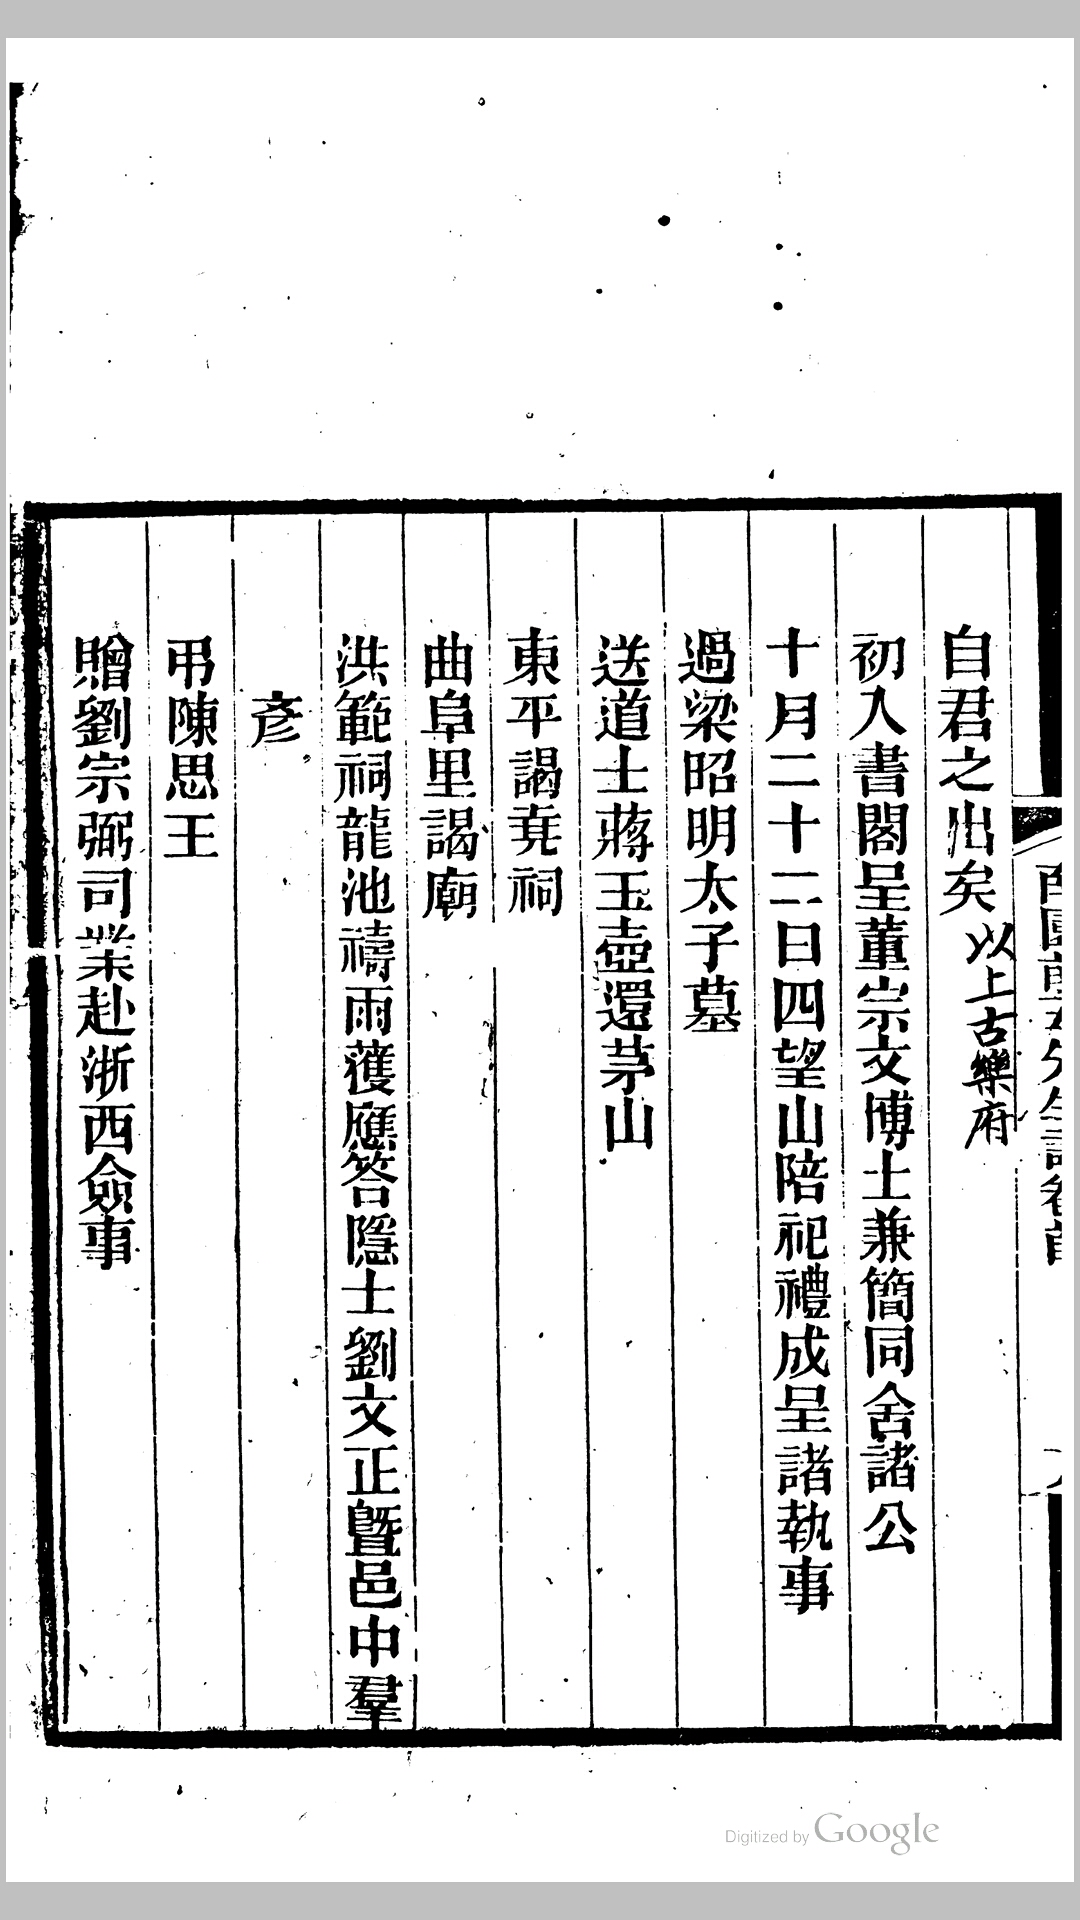 自君之出矣 以上古樂府
初入書閣呈董宗文博士兼簡同舍諸公
十月二十二日四望山陪祀禮成呈諸執事
過梁昭明太子墓
送道士蔣玉壺還茅山
東平謁堯祠
曲阜里謁廟
洪範祠龍池禱雨獲應答隱士劉文正暨邑中羣
彦
弔陳思王
贈劉宗弼司業赴浙西僉事
Digitized by Google